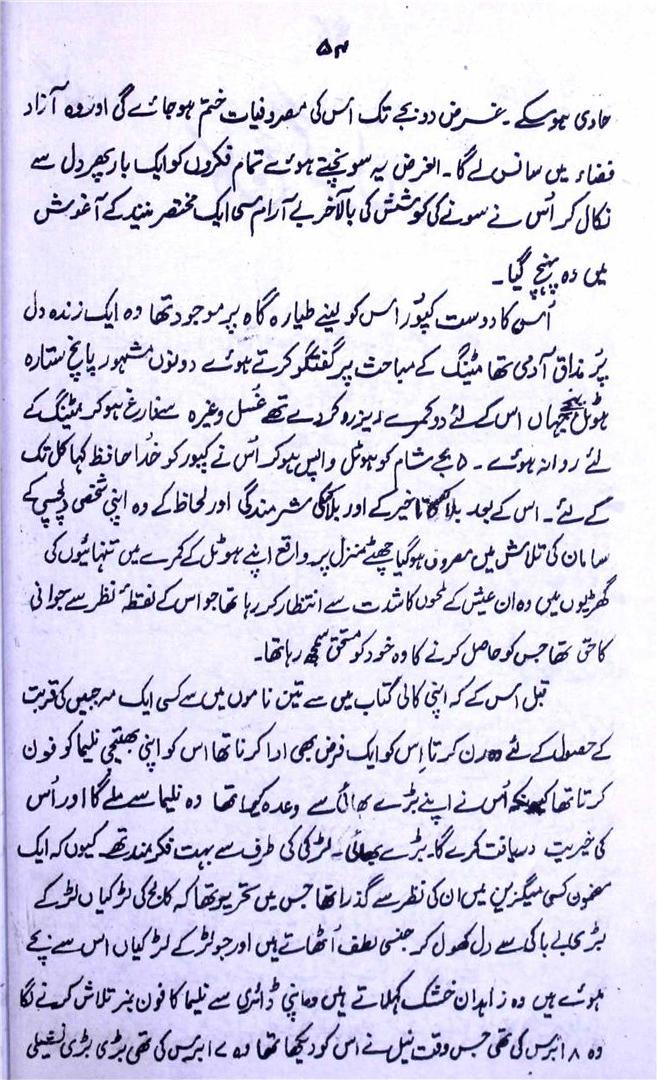 ۵۴
حادی ہوسکے۔ غرض دو بجے تک اس کی مصروفیات ختم ہوجائے گی اور وہ آزاد
فضاء میں سانس لے گا۔ الغرض یہ سونچتے ہوئے تمام فکروں کو ایک بار پھر دل سے
نکال کر اُس نے سونے کی کوشش کی بالآخر بے آرام سی ایک مختصر نیند کے آغوش
میں وہ پہنچ گیا۔
اُس کا دوست کپور اس کو لینے طیارہ گاہ پر موجود تھا وہ ایک زندہ دل
پُر مذاق آدمی تھا مٹینگ کے مباحث پر گفتگو کرتے ہوئے دونوں مشہور پانچ ستارہ
ہوٹل پہنچے جہاں اس کے لئے دو کمرے ریزرو کردیے تھے غسل وغیرہ سے فارغ ہوکر مٹینگ کے
لئے روانہ ہوئے۔ ۵ بجے شام کو ہوٹل واپس ہوکر اُس نے کپور کو خدا حافظ کہا کل تک
کے لئے۔ اس کے بعد بلا تاخیر کے اور بلا کسی شرمندگی اور لحاظ کے وہ اپنی شخصی دلچسپی کے
سامان کی تلاش میں مصروف ہوگیا چھٹے منزل پر واقع اپنے ہوٹل کے کمرے میں تنہائیوں کی
گھڑیوں میں وہ ان عیش کے لمحوں کا شدت سے انتظار کر رہا تھا جو اس کے نقطۂ نظر سے جوانی
کا حق تھا جس کو حاصل کرنے کا وہ خود کو مستحق سمجھ رہا تھا۔
قبل اس کے کہ اپنی کالی کتاب میں سے تین ناموں میں سے کسی ایک مہ جبیں کی قربت
کے حصول کے لئے وہ رن کرتا اِس کو ایک فرض بھی ادا کرنا تھا اس کو اپنی بھتیجی نلیما کو فون
کرنا تھا کیونکہ اُس نے اپنے بڑے بھائی سے وعدہ کیا تھا وہ نلیما سے ملے گا اور اُس
کی خیریت دریافت کرے گا۔ بڑے بھائی۔ لڑکی کی طرف سے بہت فکر مند تھے کیوں کہ ایک
مضمون کسی میگزین میں ان کی نظر سے گذرا تھا جس میں تحریر تھا کہ کالج کی لڑکیاں لڑکے
بڑی بے باکی سے دل کھول کر جنسی لطف اُٹھاتے ہیں اور جو لڑکے لڑکیاں اس سے بچے
ہوئے ہیں وہ زاہدان خشک کہلاتے ہیں وہ اپنی ڈائری سے نلیما کا فون نمبر تلاش کرنے لگا
وہ ۱۸ برس کی تھی جس وقت نیل نے اس کو دیکھا تھا وہ ۱۷ برس کی تھی بڑی بڑی نشیلی